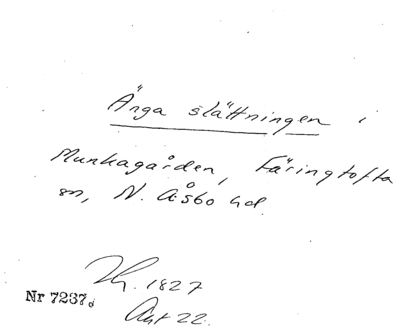 Änga slåttningen i
Munkagården, Färingtofta
sn, N. Åsbo hd.
1827
Nr 7237.
22.